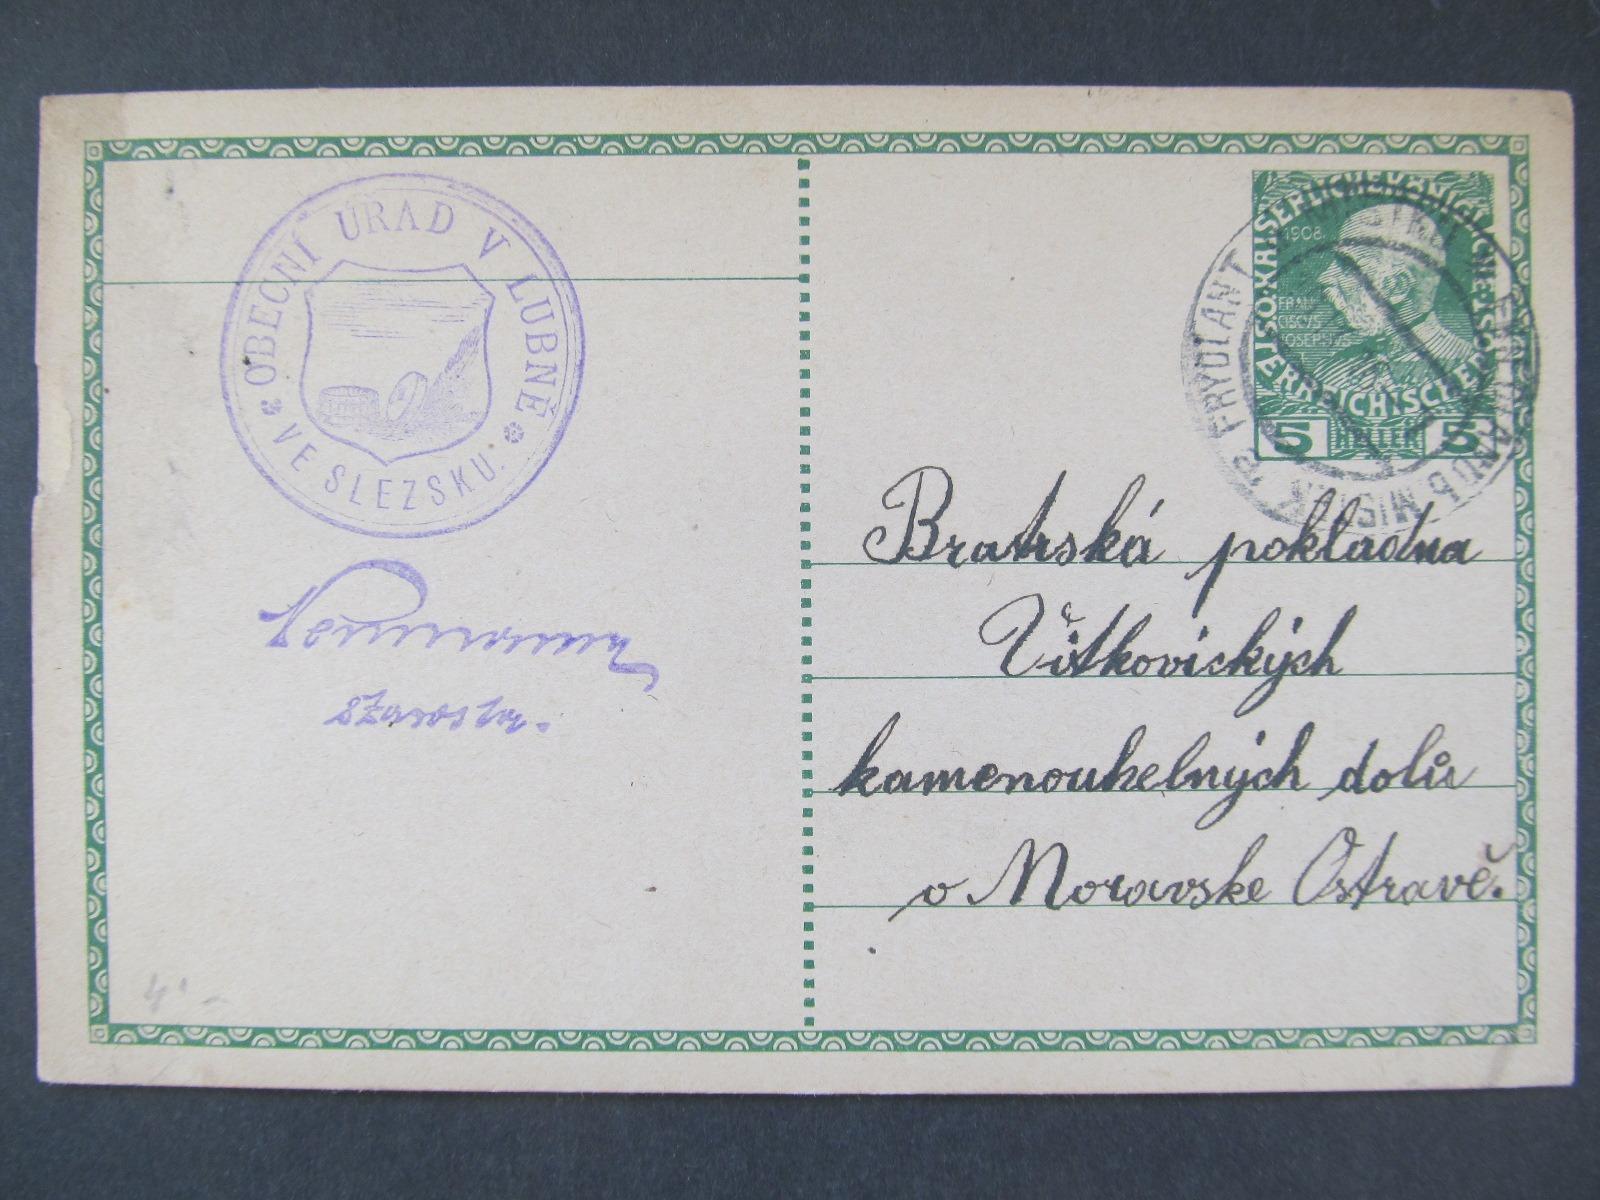 OBECNÍ ÚRAD V LUBNĚ
VE SLEZSKU.
starosta.
KAISERLICHE KÖNIGLICHE
ÖSTERREICHISCHE
1908
FRAN
CISCVS
IOSEPHVS
5 HELLER 5
FRYDLANT
MISTEK
FRIEDLAND b MISTEK
Bratrská pokladna
Vítkovických
kamenouhelných dolův
v Moravske Ostravě.